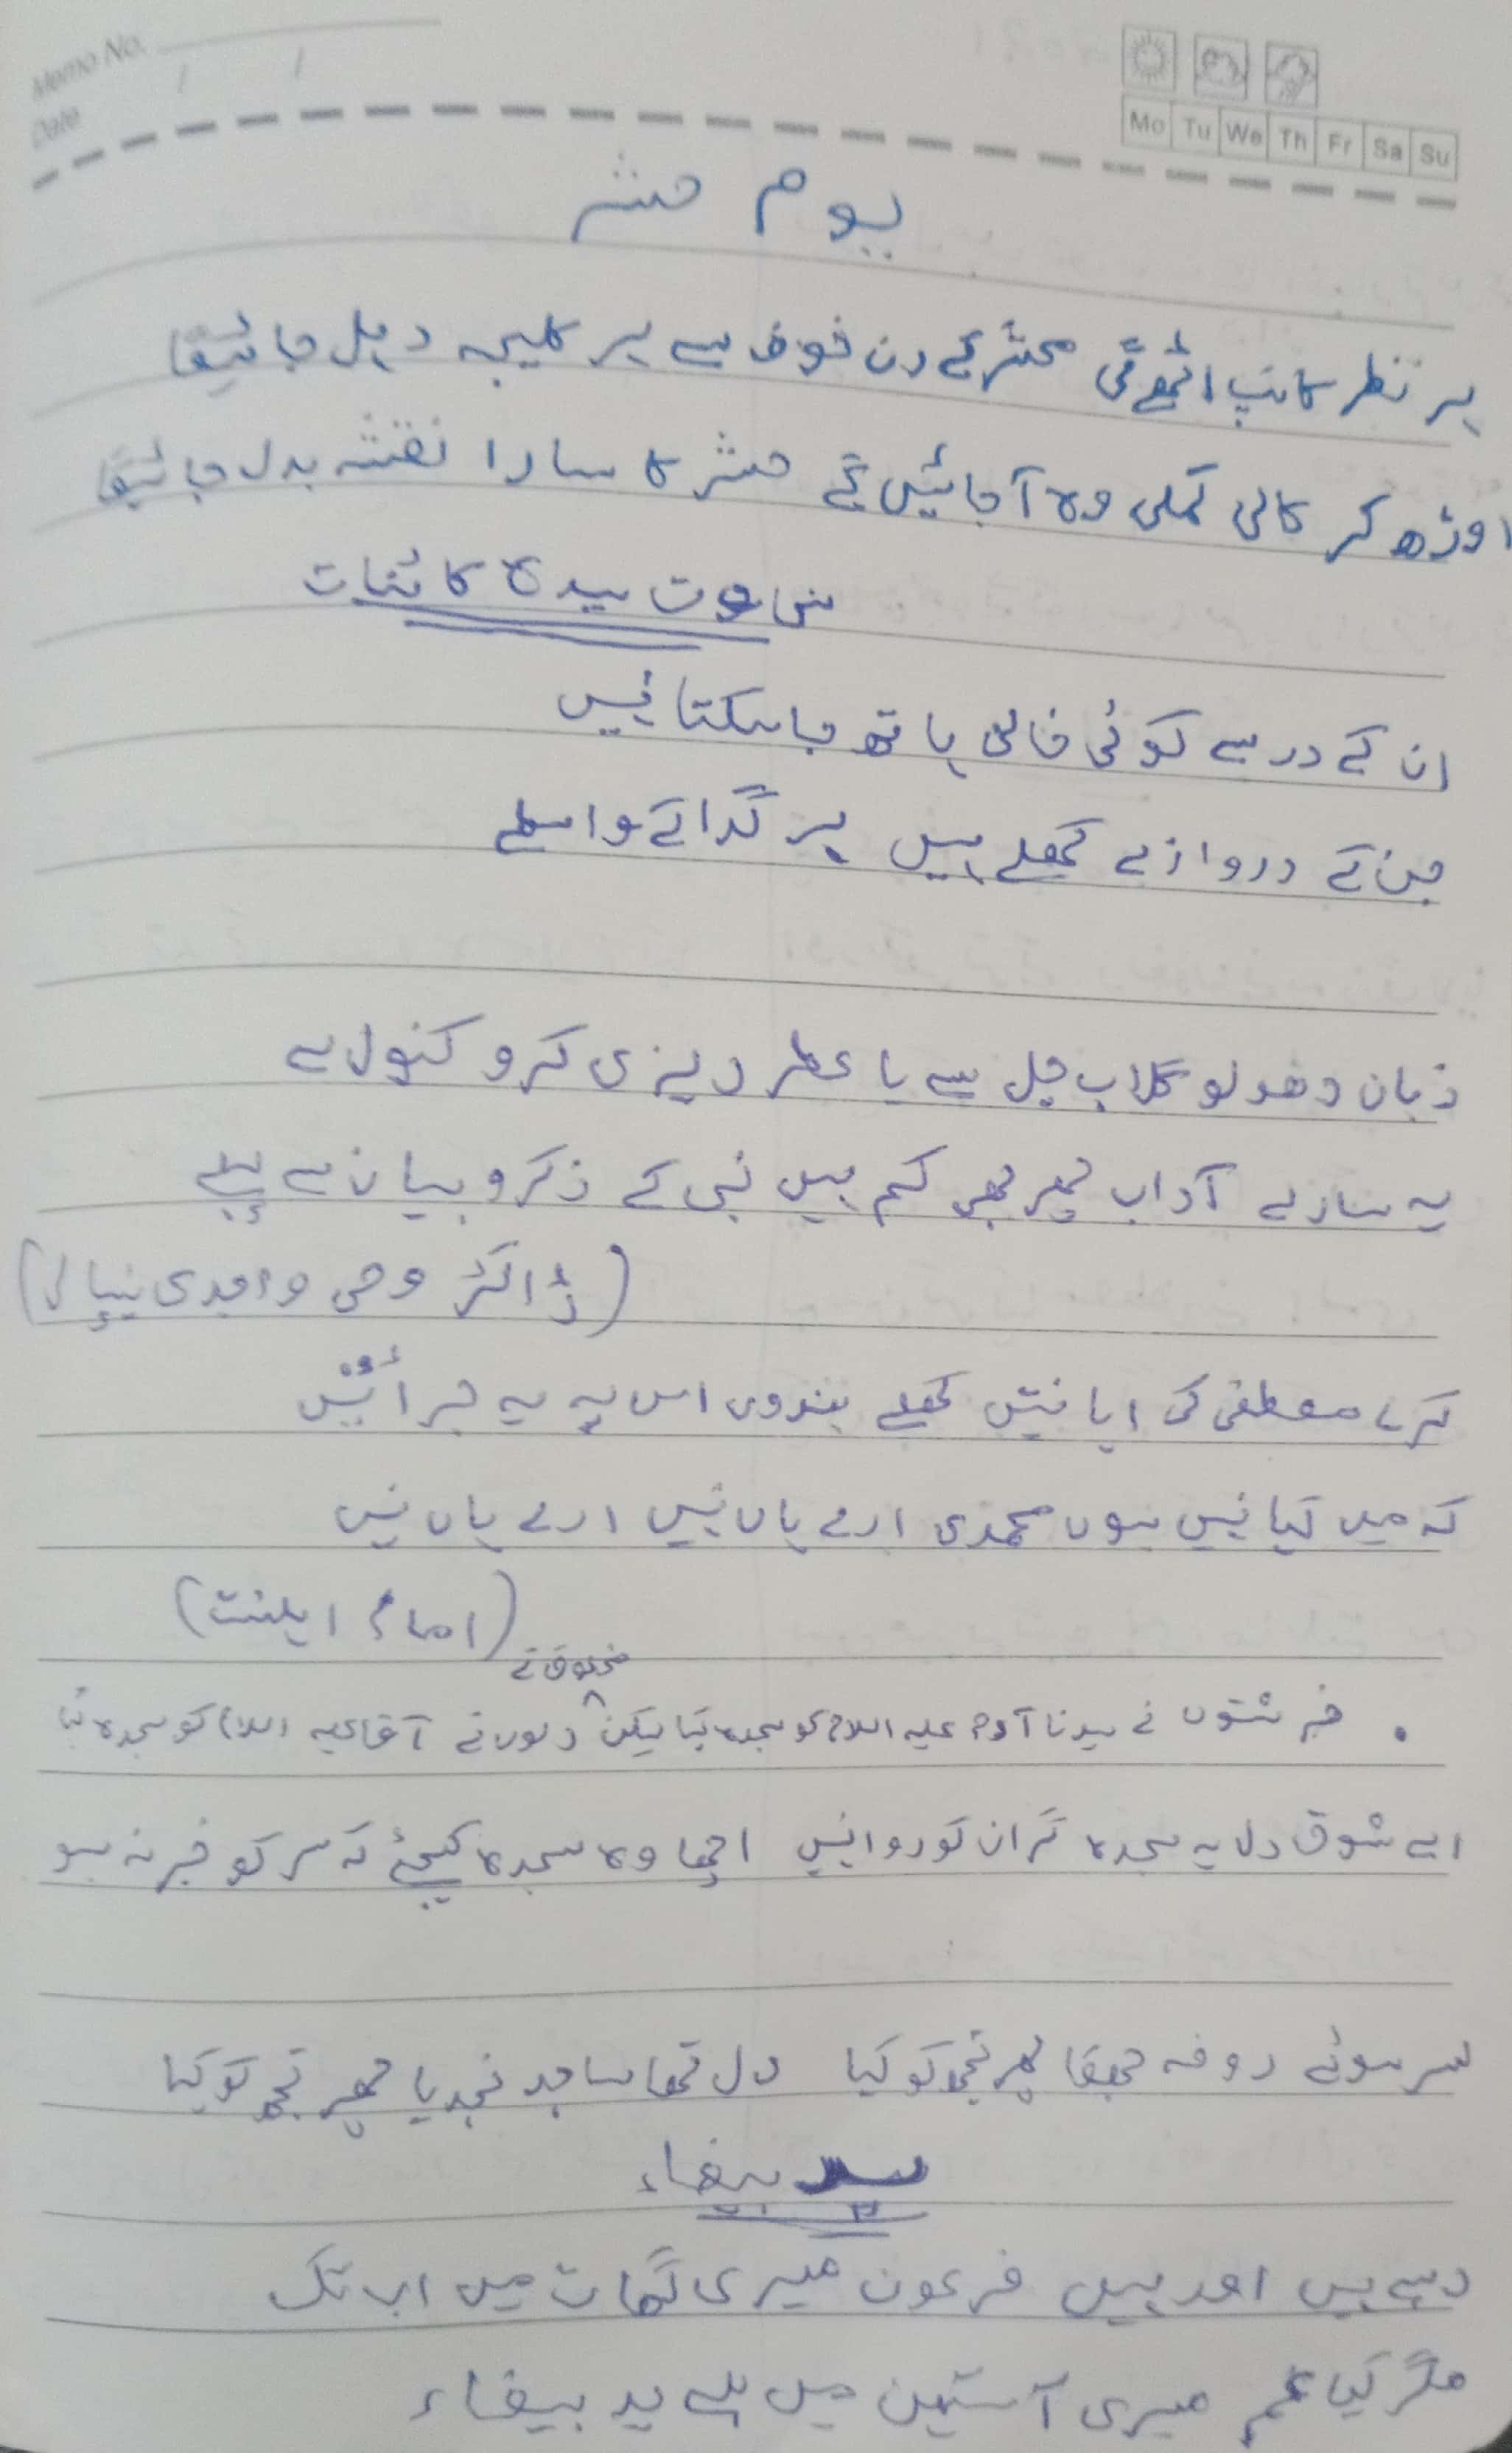 Memo No.
Date / /
Mo Tu We Th Fr Sa Su
یوم حشر
ہر نظر کانپ اٹھے گی محشر کے دن خوف سے ہر کلیجہ دہل جائیگا
اوڑھ کر کالی کملی وہ آ جائیں گے حشر کا سارا نقشہ بدل جائیگا
سخاوت سیدہ کائنات
ان کے در سے کوئی خالی ہاتھ جا سکتا نہیں
جن کے دروازے کھلے ہیں ہر گدا کے واسطے
زبان دھولو گلاب جل سے یا عطر ریزی کرو کنول سے
یہ سارے آداب پھر بھی کم ہیں نبی کے ذکر و بیاں سے پہلے
(ڈاکٹر وصی واجدی نیپالی)
کرے مصطفی کی اہانتیں کھلے بندوں اس پہ یہ جرأتیں
کہ میں کیا نہیں ہوں محمدی ارے ہاں نہیں ارے ہاں نہیں
(امام اہلسنت)
مخلوق نے
• فرشتوں نے سیدنا آدم علیہ السلام کو سجدہ کیا لیکن دلوں نے آقا علیہ السلام کو سجدہ کیا
اے شوق دل یہ سجدہ گر ان کو روا نہیں اچھا وہ سجدہ کیجئے کہ سر کو خبر نہ ہو
سر سوئے روضہ جھکا پھر تجھ کو کیا دل تھا ساجد نجدیا پھر تجھ کو کیا
ید بیضاء
رہے ہیں اور ہیں فرعون میری گھات میں اب تک
مگر کیا غم میری آستین میں ہے ید بیضاء